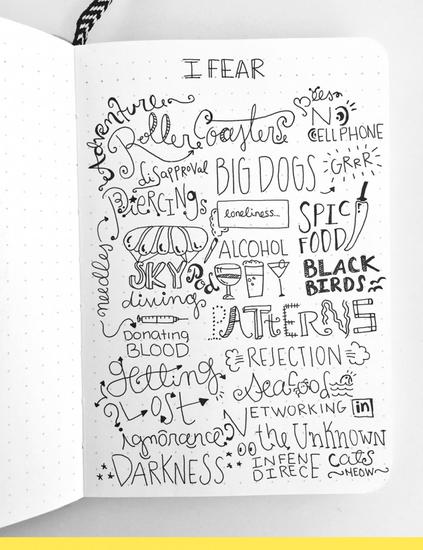 I FEAR
Adventure
Bees
NO
CELLPHONE
Roller Coasters
disapproval
BIG DOGS
GRRR
Piercings
loneliness...
SPICY
FOOD
needles
ALCOHOL
SKY
diving
Pod
BLACK
BIRDS
PATTERNS
Donating
BLOOD
REJECTION
getting
LOST
seafood
NETWORKING in
ignorance
the Unknown
DARKNESS
INFENE
DIRECE
cats
~MEOW~